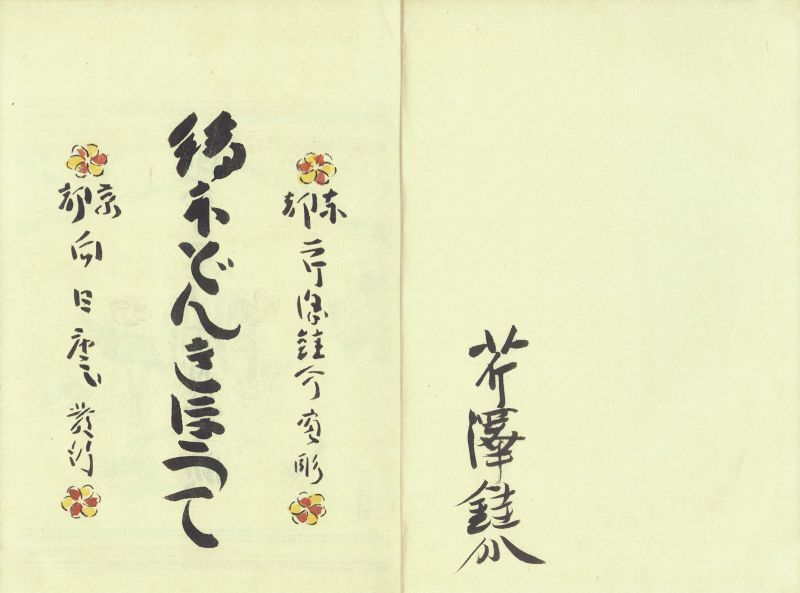 芹澤銈介
東都 芹澤銈介畫彫
繪本どんきほうて
京都 向日庵 發行